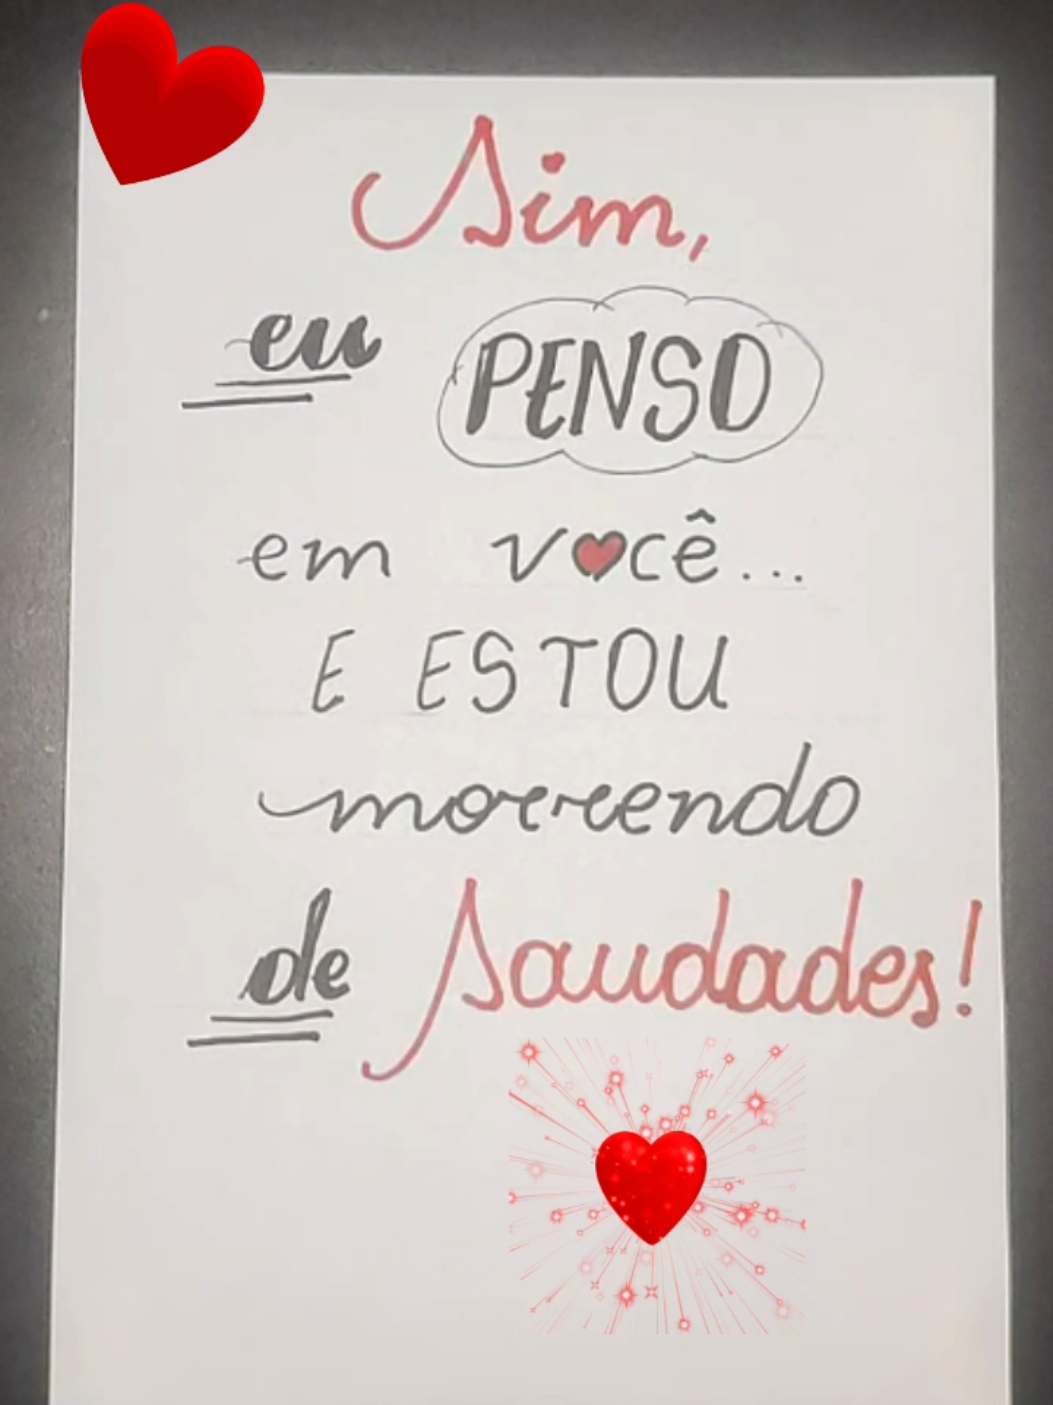 Sim,
eu PENSO
em você...
E ESTOU
morrendo
de Saudades!